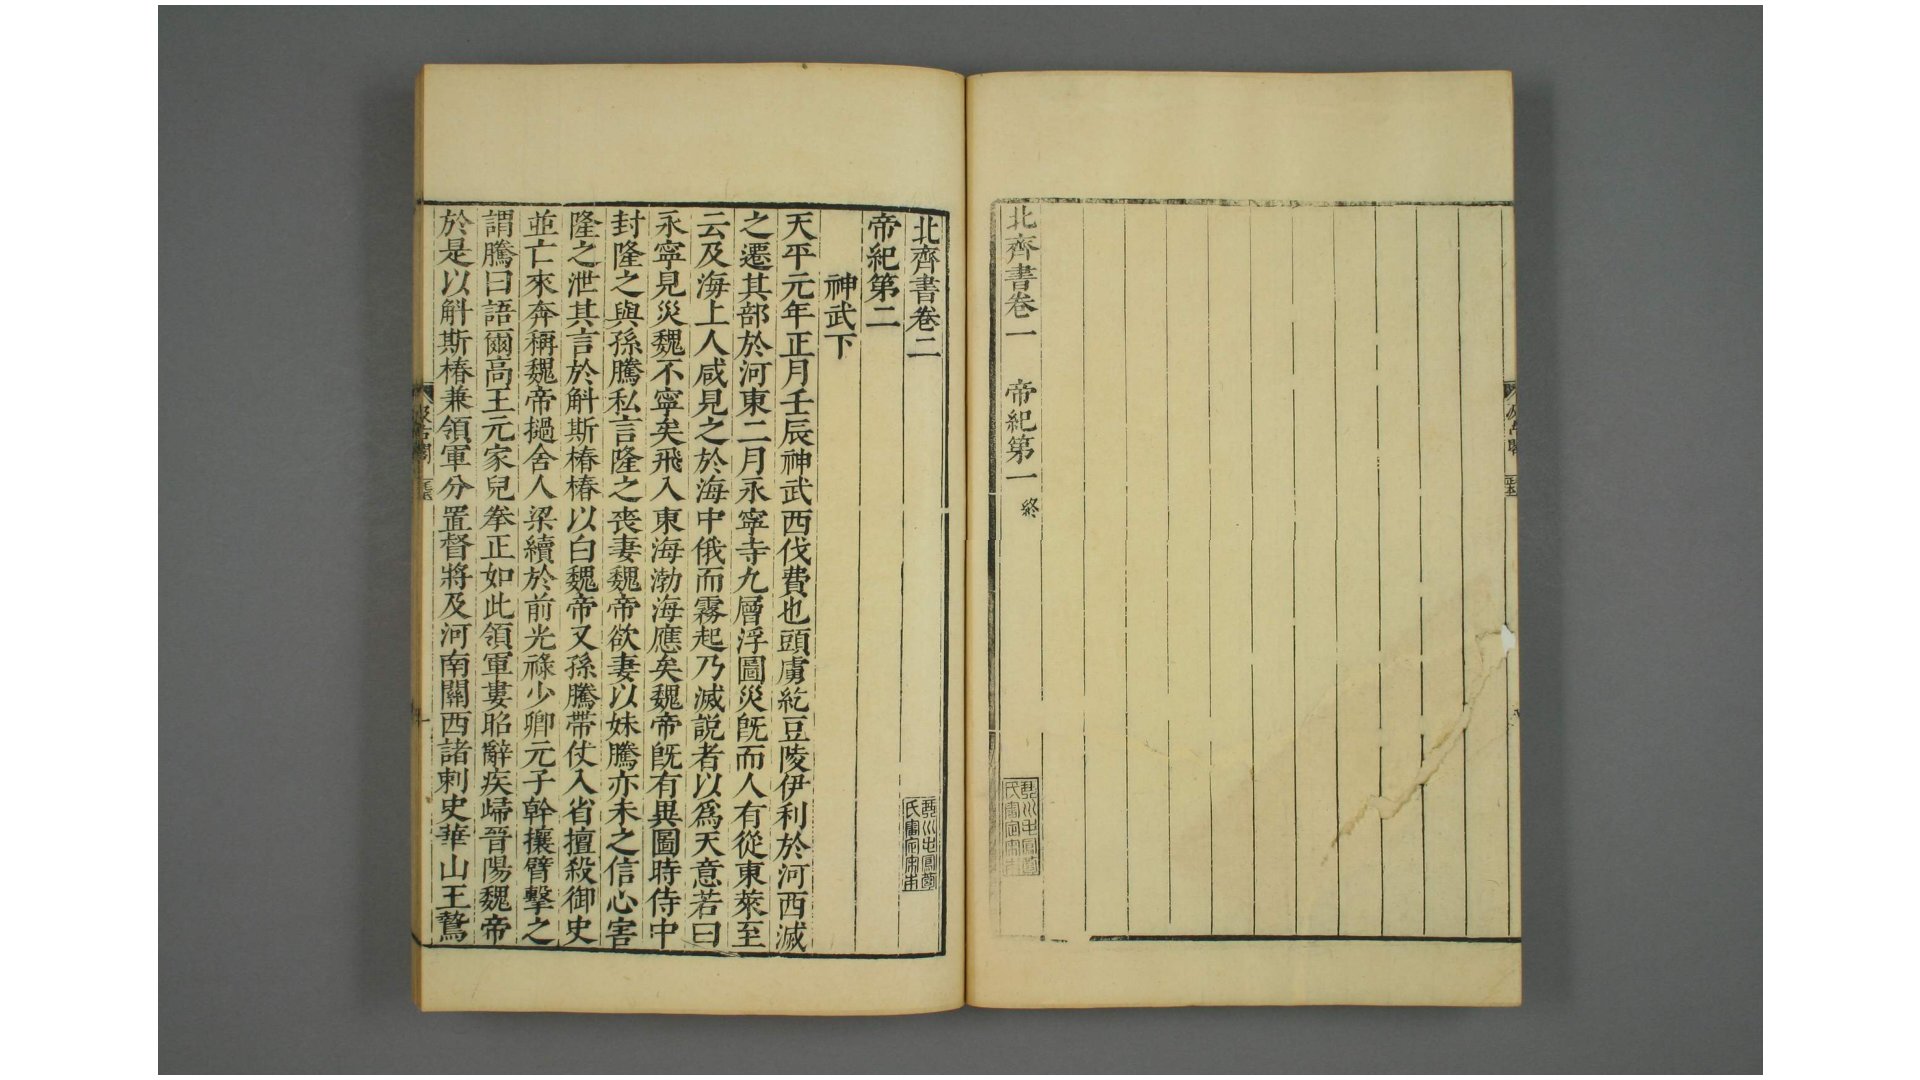 北齊書卷一　帝紀第一　終
北齊書卷二
帝紀第二
神武下
天平元年正月壬辰神武西伐費也頭虜紇豆陵伊利於河西滅
之遷其部於河東二月永寧寺九層浮圖災旣而人有從東萊至
云及海上人咸見之於海中俄而霧起乃滅説者以爲天意若曰
永寧見災魏不寧矣飛入東海渤海應矣魏帝旣有異圖時侍中
封隆之與孫騰私言隆之喪妻魏帝欲妻以妹騰亦未之信心害
隆之泄其言於斛斯椿椿以白魏帝又孫騰帶仗入省擅殺御史
並亡來奔稱魏帝撾舍人梁續於前光祿少卿元子幹攘臂擊之
謂騰曰語爾高王元家兒拳正如此領軍婁昭辭疾歸晉陽魏帝
於是以斛斯椿兼領軍分置督將及河南關西諸刺史華山王鷙
汲古閣